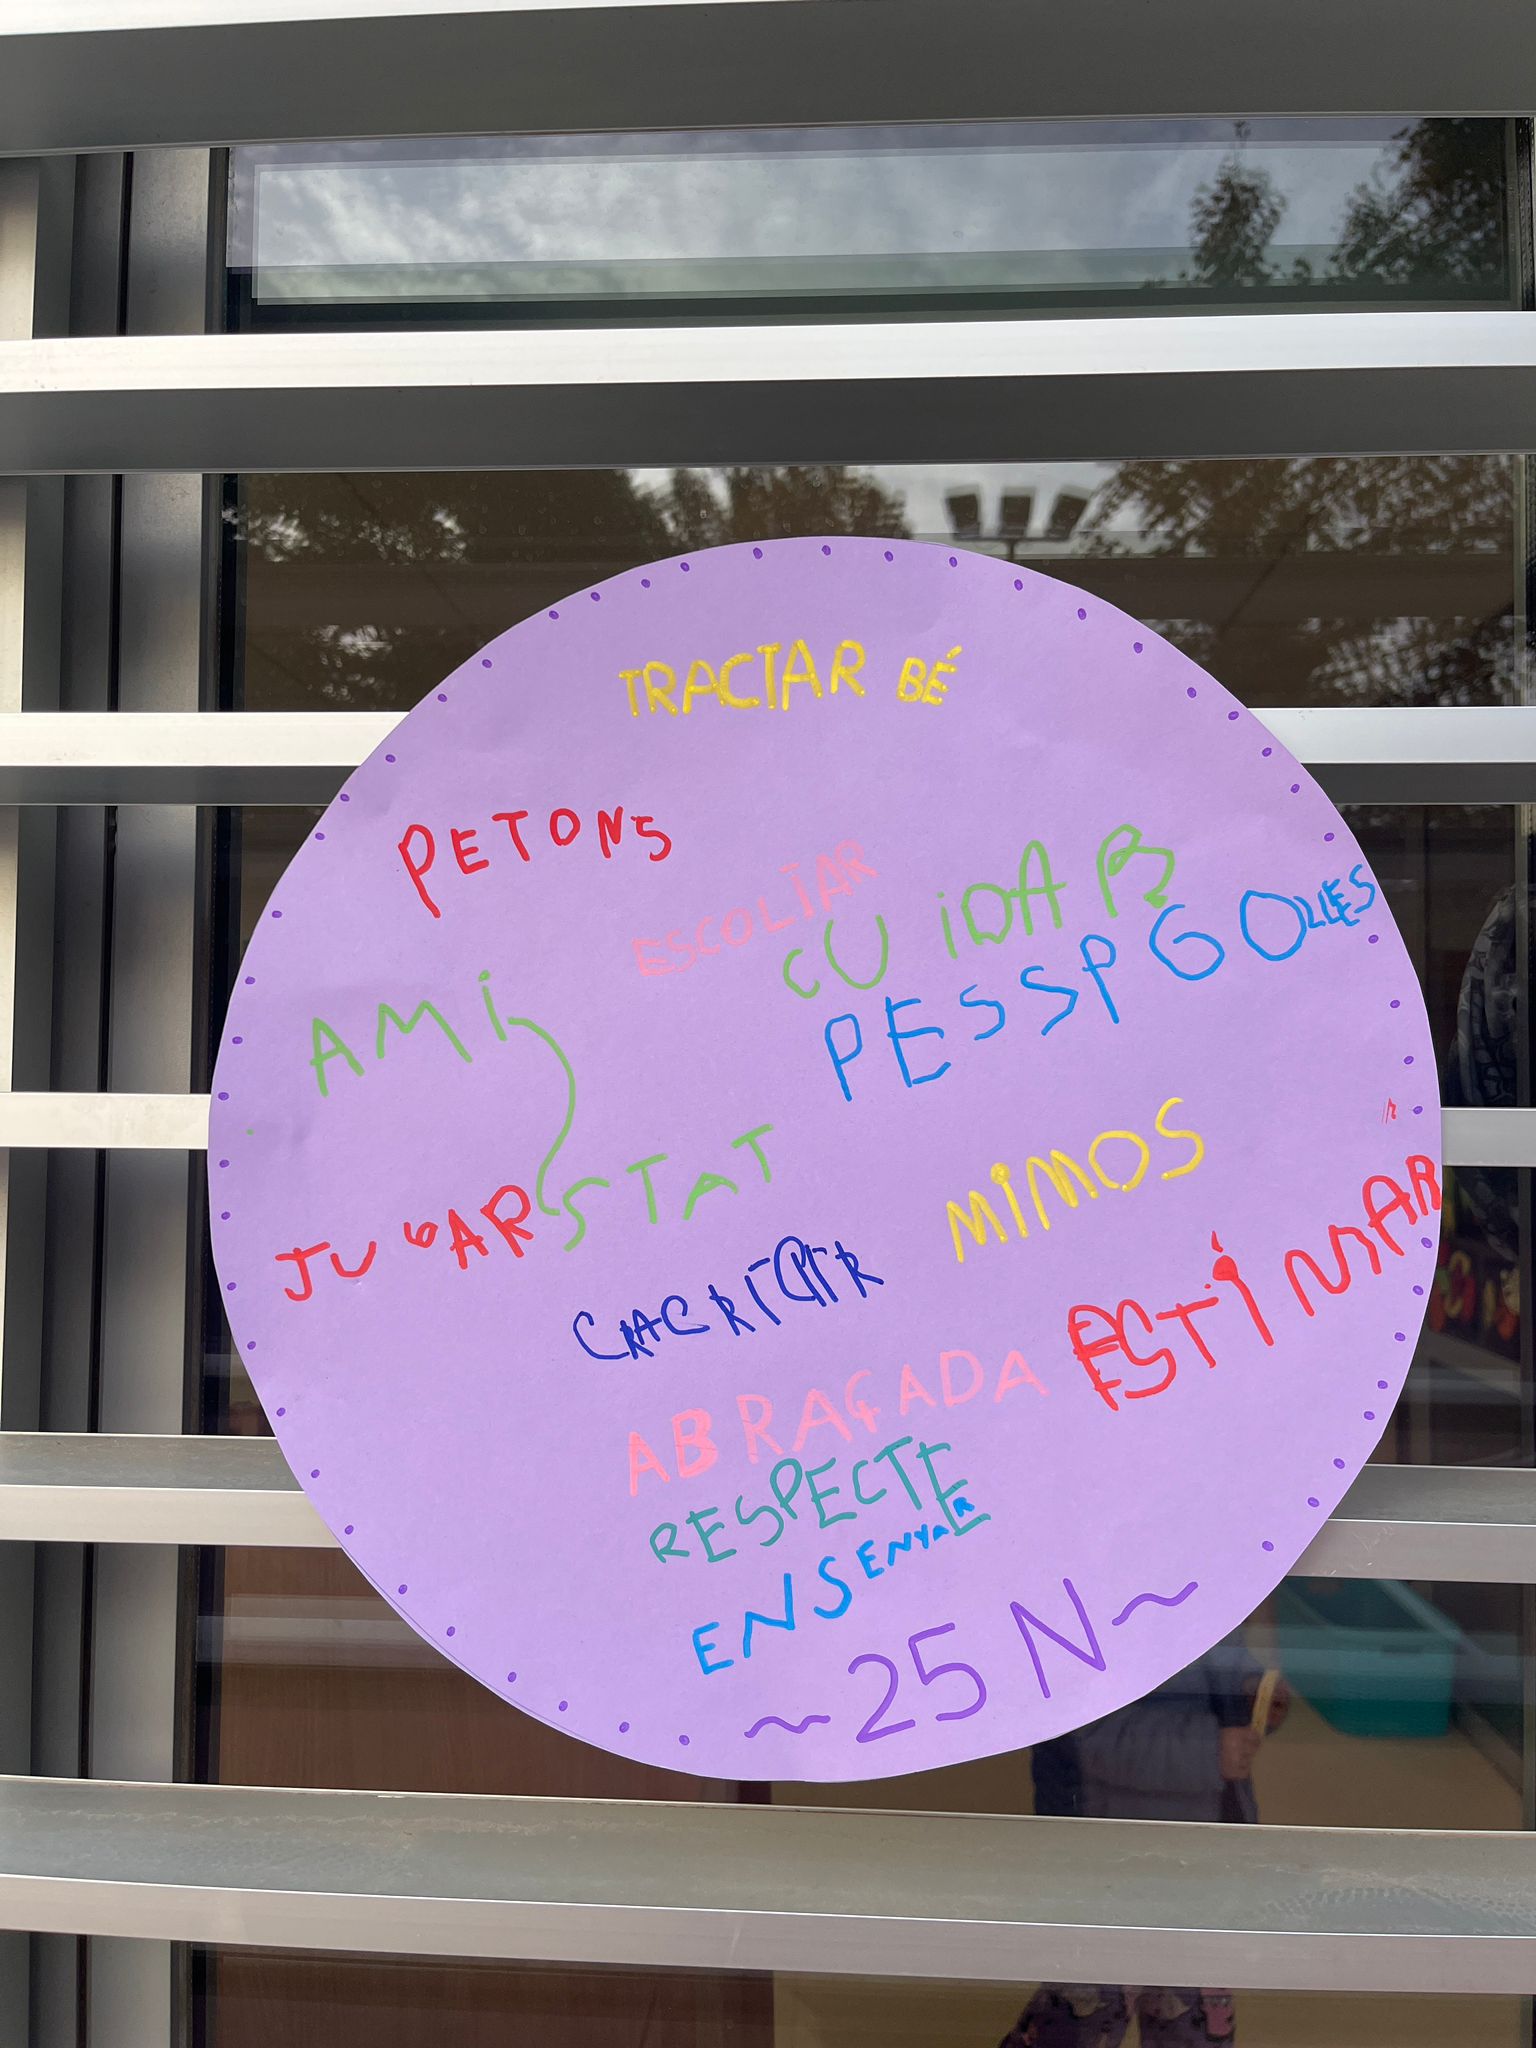 TRACTAR BÉ
PETONS
ESCOLTAR
CUIDAR
PESSPGOLLES
AMISTAT
MIMOS
JUGAR
ESTIMAR
ABRAÇADA
RESPECTE
ENSENYAR
~25N~